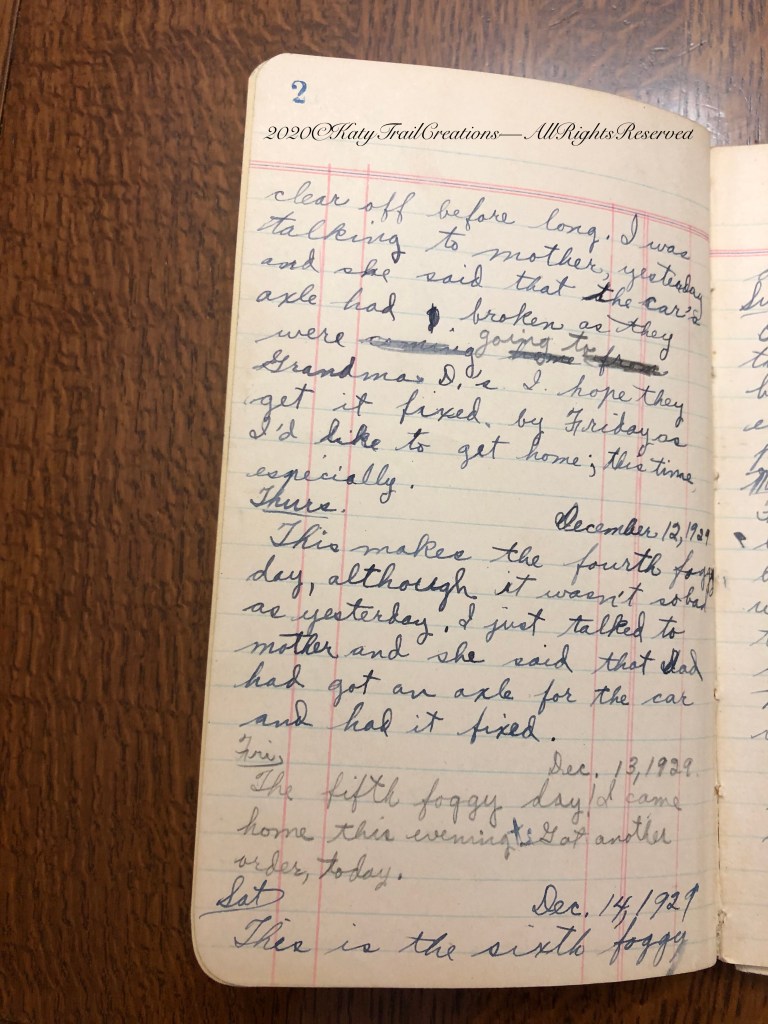 2
2020©KatyTrailCreations—AllRightsReserved
clear off before long. I was
talking to mother, yesterday
and she said that the car's
axle had broken as they
were coming going to home from
Grandma D.'s I hope they
get it fixed. by Friday as
I'd like to get home; this time
especially.
Thurs.
December 12, 1929
This makes the fourth foggy
day, although it wasn't so bad
as yesterday. I just talked to
mother and she said that Dad
had got an axle for the car
and had it fixed.
Fri.
Dec. 13, 1929.
The fifth foggy day! I came
home this evening. Got another
order, today.
Sat
Dec. 14, 1929
This is the sixth foggy